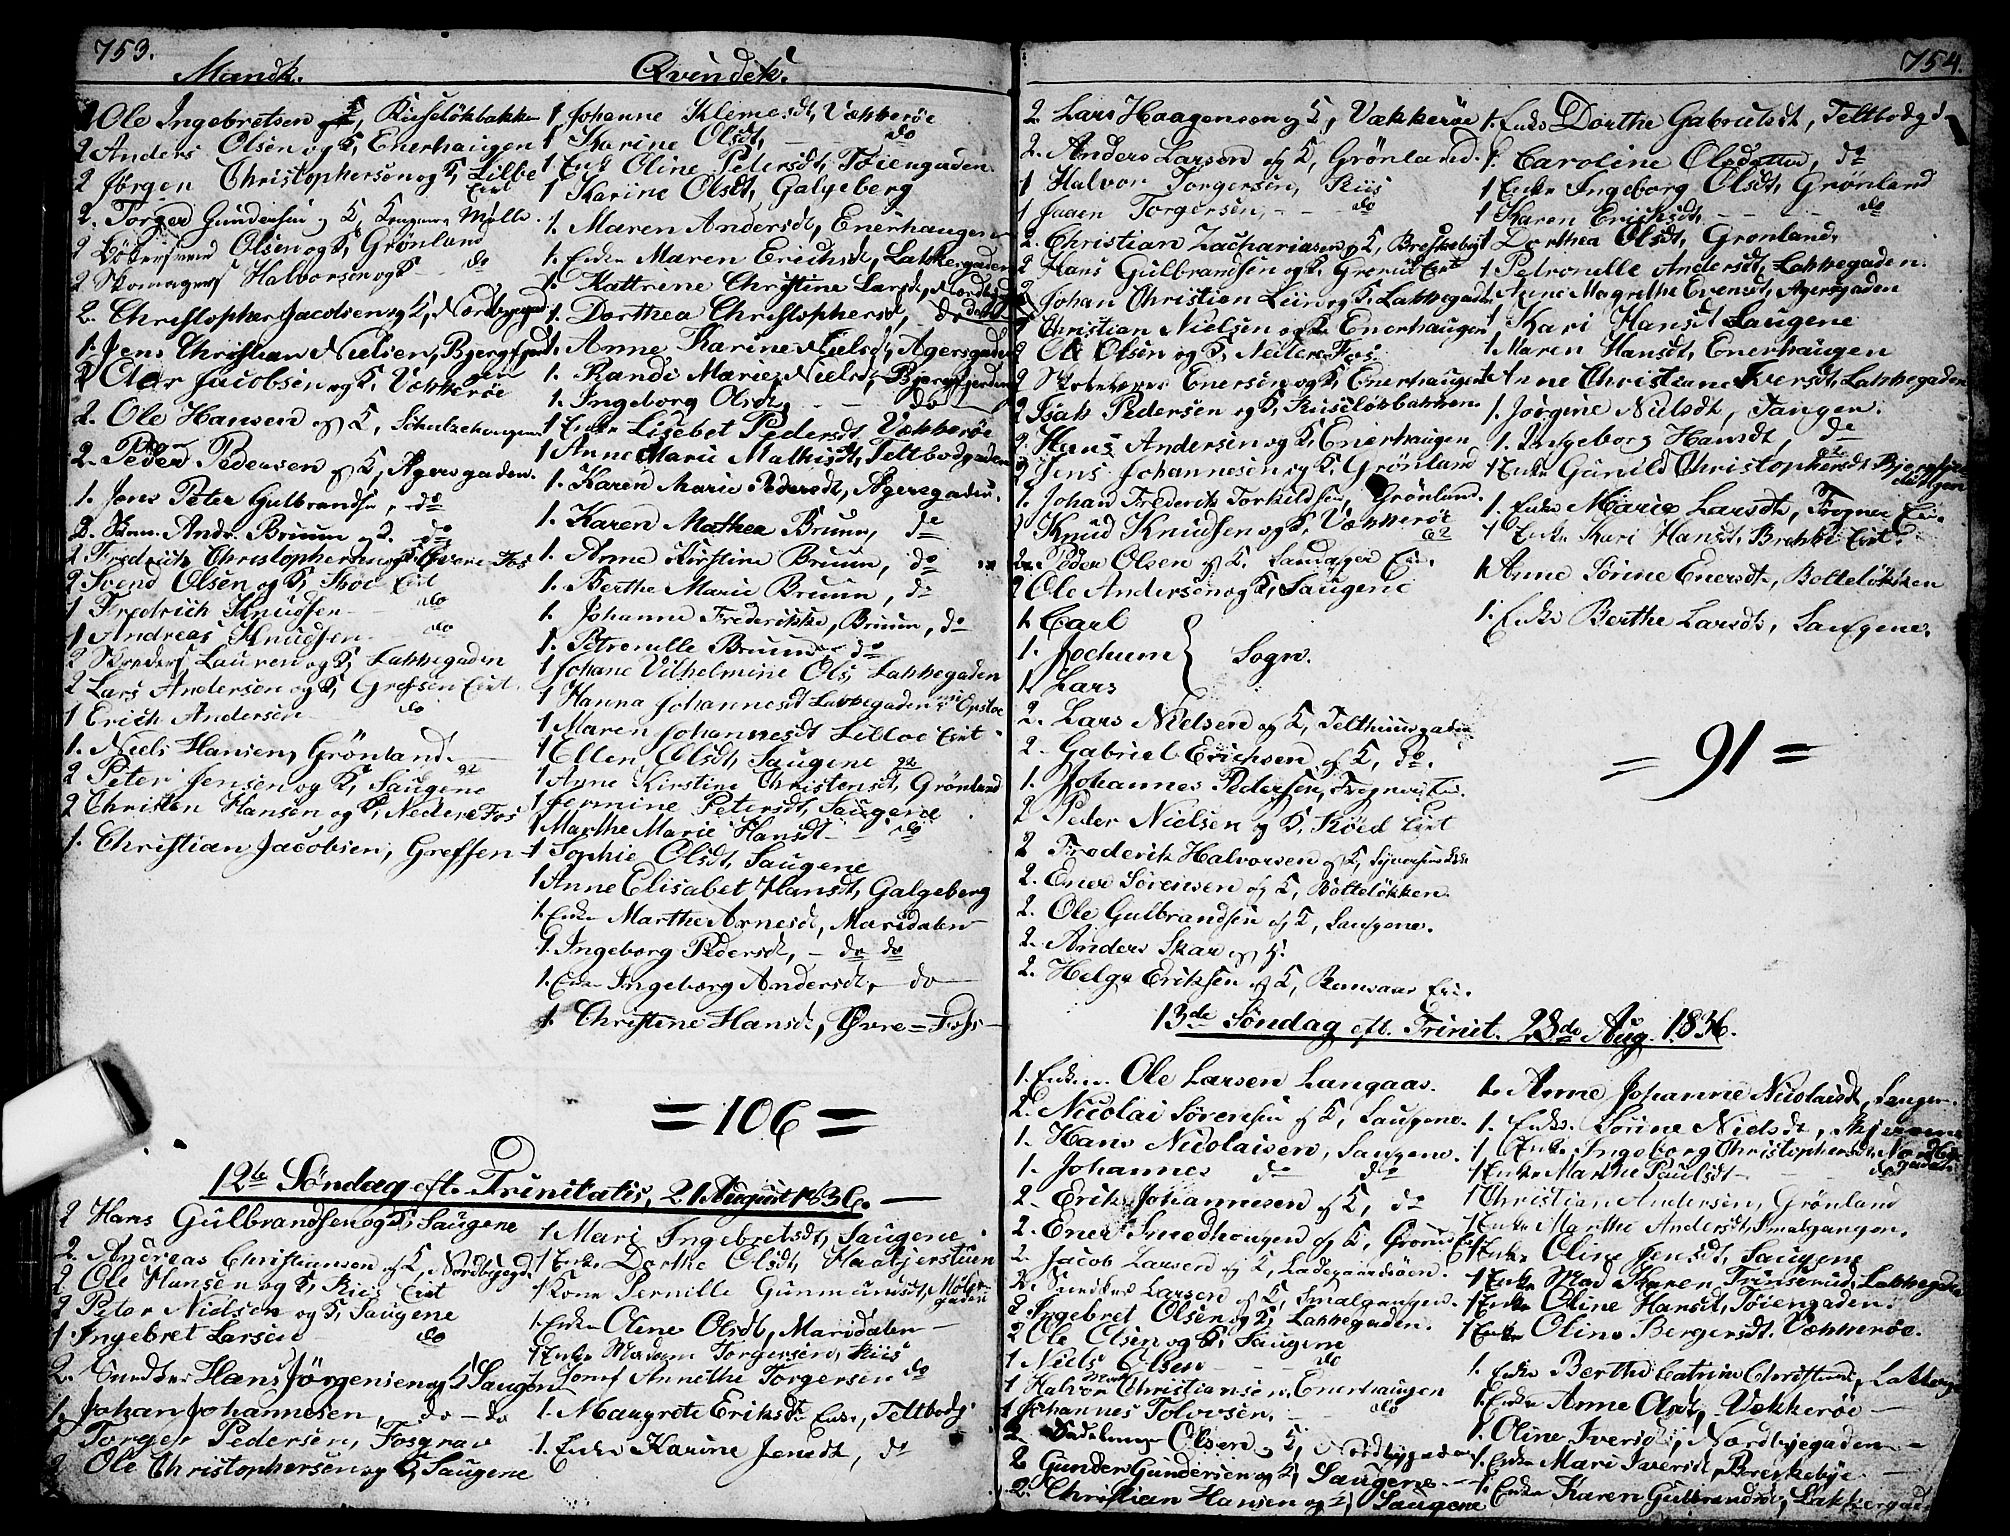 753.
Mandk.
Qvindek.
2 Ole Ingebretsen og K, Ruseløkbakken
2 Anders Olsen og K, Enerhaugen
2 Jørgen Christophersen og K, Lilbe Eie
2. Torger Gundersen og K, Møllr.
2 Olsen og K, Grønland
2 Skomagers Halvorsen og K do
2. Christopher Jacobsen og K, Nordbygad
1. Jens Christian Nielsen, Bjergfjerd
2 Jacobsen og K, Vækkerøe
2. Ole Hansen og K, Schultzehougen
2. Peder Pedersen og K, Agersgaden.
1. Jens Peter Gulbrandsen, do
2. Andr. Bruun og do
2 Frederich Christophersen og K Øvere Fos
2 Svend Olsen og K, Skoe Eiet
1 Fredrich Knudsen do
1 Andreas Knudsen do
2 Skreders Lauren og K, Lakkegaden
2 Lars Andersen og K, Grefsen Eiet.
1 Erich Andersen do
1. Niels Hansen, Grønland.
2 Peter Jensen og K, Saugene
2 Christen Hansen og K, Nedere Fos
1. Christian Jacobsen, Greffen
1. Johanne Klemesdt, Vækkerøe
1 Karine Olsdt, do
1 Enke Oline Pedersdt, Tøiengaden
1 Karine Olsdt, Galgeberg
1. Maren Andersdt, Enerhaugen
1. Enke Maren Erichsdt, Lakkegaden
1. Kattrine Christine Larsdt, Nordby
1. Dorthea Christophersdt, do
1. Anne Karine Nielsdt, Agersgaden
1. Randi Marie Nielsdt, Bjergfjerden
1. Ingeborg Olsdt, do
1 Enke Lisebet Pedersdt, Vækkerøe
1 Anne Marie Mathisdt, Teltbodgaden
1. Karen Marie Pedersdt, Agersgaden.
1. Karen Mathea Bruun, do
1. Anne Kirstine Bruun, do
1. Berthe Marie Bruun, do
1. Johanne Frederikke, Bruun, do
1. Petronelle Bruun do
1 Johane Vilhelmine Ols, Lakkegaden
1 Hanna Johannesdt Lakkegaden Opsloe
1 Maren Johannesdt Lilloe Eiet
1 Ellen Olsdt, Saugene
1 Anne Kirstine Christensdt, Grønland
1 Jermine Petersdt, Saugene
1 Marthe Marie Hansdt do
1 Sophie Olsdt, Saugene
1 Anne Elisabet Hansdt, Galgeberg
1. Enke Marthe Arnesdt, Maridalen
1. Ingeborg Pedersdt, do do
1. Enke Ingeborg Andersdt, do
1. Christine Hansdt, Øvre=Foss
= 106 =
12te Søndag eft. Trinitatis, 21 August 1836.
2 Hans Gulbrandsen og K, Saugene
2. Andreas Christiansen og K, Nordbygad
2 Ole Hansen og K, Riis Eiet
2 Peter Nielsen og K, Saugene
1 Ingebret Larsen do
2. Snedker Hans Jørgensen og K Saugen
1. Johan Johannesen, do do
1 Torger Pedersen, Fosgrav
2 Ole Christophersen og K, Saugene
1 Mari Ingebretsdt, Saugene.
1 Enke Dorthe Olsdt, Haabjerstuen
1 Kone Pernille Gunmundsdt, Møler gaden
1. Enke Oline Olsdt, Maridalen
1 Enke Madam Torgersen, Riis
1 Jomf Annethe Torgersen do
1. Maugrete Eriksdt Enke, Teltbodg
1. Enke Karine Jensdt, do
754.
2 Lars Haagensen og K, Vækkerøe
2. Anders Larsen og K, Grønland.
1 Halvor Torgersen, Riis
1 Torgersen, do
2. Christian Zachariasen og K, Breskebye
2 Hans Gulbrandsen og K, Eiet
2 Johan Christian Lien og K, Lakkegaden
2 Christian Nielsen og K, Enerhaugen
2 Ole Olsen og K, Nedere Fos
2 Enersen og K, Enerhaugen
2 Isak Pedersen og K, Ruseløkbakken.
2. Hans Andersen og K, Enerhaugen
2 Jens Johannesen og K, Grønland
1. Johan Frederik Torkildsen, Grønland.
2 Knud Knudsen og K, Vækkerøe
2. Peder Olsen og K, Sandager Eie.
2 Ole Andersen og K, Saugene
1. Carl
1. Jochum } Sogn.
1. Lars
2. Lars Nielsen og K, Telthuusgaden
2. Gabriel Erichsen og K, do.
1. Johannes Pedersen, Frogner Eie.
2 Peder Nielsen og K, Røed Eiet
2 Frederik Halvorsen og K,
2. Ener Sørensen og K, Bolteløkken.
2. Ole Gulbrandsen og K, Saugene.
2. Anders Skar og K.
2. Helge Eriksen og K, Eie.
1. Enke Dorthe Gabrielsdt, Teltbodgd
1. Caroline Olsdatter, do
1 Enke Ingeborg Olsdt, Grønland
1 Karen Erichsdt, do
1 Dorthea Olsdt, Grønland,
1 Petronelle Andersdt, Lakkegaden.
1 Anne Magrethe Evensdt, Agersgaden
1 Kari Hansdt Saugene
1 Maren Hansdt, Enerhaugen
1 Anne Christiane Iversdt, Lakkegaden
1. Jørgine Nielsdt, Tangen.
1. Ingeborg Hansdt, do
1 Enke Gunild Christophersdt
1. Enke Marie Larsdt, Frogner Eie.
1 Enke Kari Hansdt, Brekke Eiet.
1. Anne Sørine Enersdt, Bolteløkken
1. Enke Berthe Larsdt, Saugene.
= 91 =
13de Søndag eft. Trinit. 28de Aug. 1836.
1. Enkem. Ole Larsen Langaas.
2. Nicolai Sørensen og K, Saugene.
1. Hans Nicolaisen, Saugene.
1. Johannes do do
2. Erik Johannesen og K, do
2. Ener Smedhougen og K,
2. Jacob Larsen og K, Ladegaardsøen.
2. Snedker Larsen og K, Smalgangen.
2 Ingebret Olsen og K, Lakkegaden.
2 Ole Olsen og K, Saugene
1 Niels Olsen do
1 Halvor Christiansen, Enerhaugen
1 Johannes Tolvsen, do
2. Olsen og K, Nordbygaden
2 Gunder Gundersen og K, Saugene
2. Christian Hansen og K, Saugene
1. Anne Johanne Nicolaisdt, Saugen
1. Enke Lorine Nielsdt,
1 Enke Ingeborg Christophersdt, Nordbye gaden
1 Enke Marthe Paulsdt do
1 Christian Andersen, Grønland
1 Enke Marthe Andersdt, Smalgangen.
1 Enke Oline Jensdt, Saugene
1 Enke Mad Karen Lakkegade
1 Enke Oline Hansdt, Tøiengaden.
1 Enke Oline Bergersdt. Vækkerøe.
1. Enke Berthe Catrine Lakkeg
1. Enke Anne Olsdt, Vækkerøe
1. Oline Iversdt, Nordbyegaden
1. Enke Mari Iversdt, Breskebye
1. Enke Karen Gulbrandsdt, Lakkergad